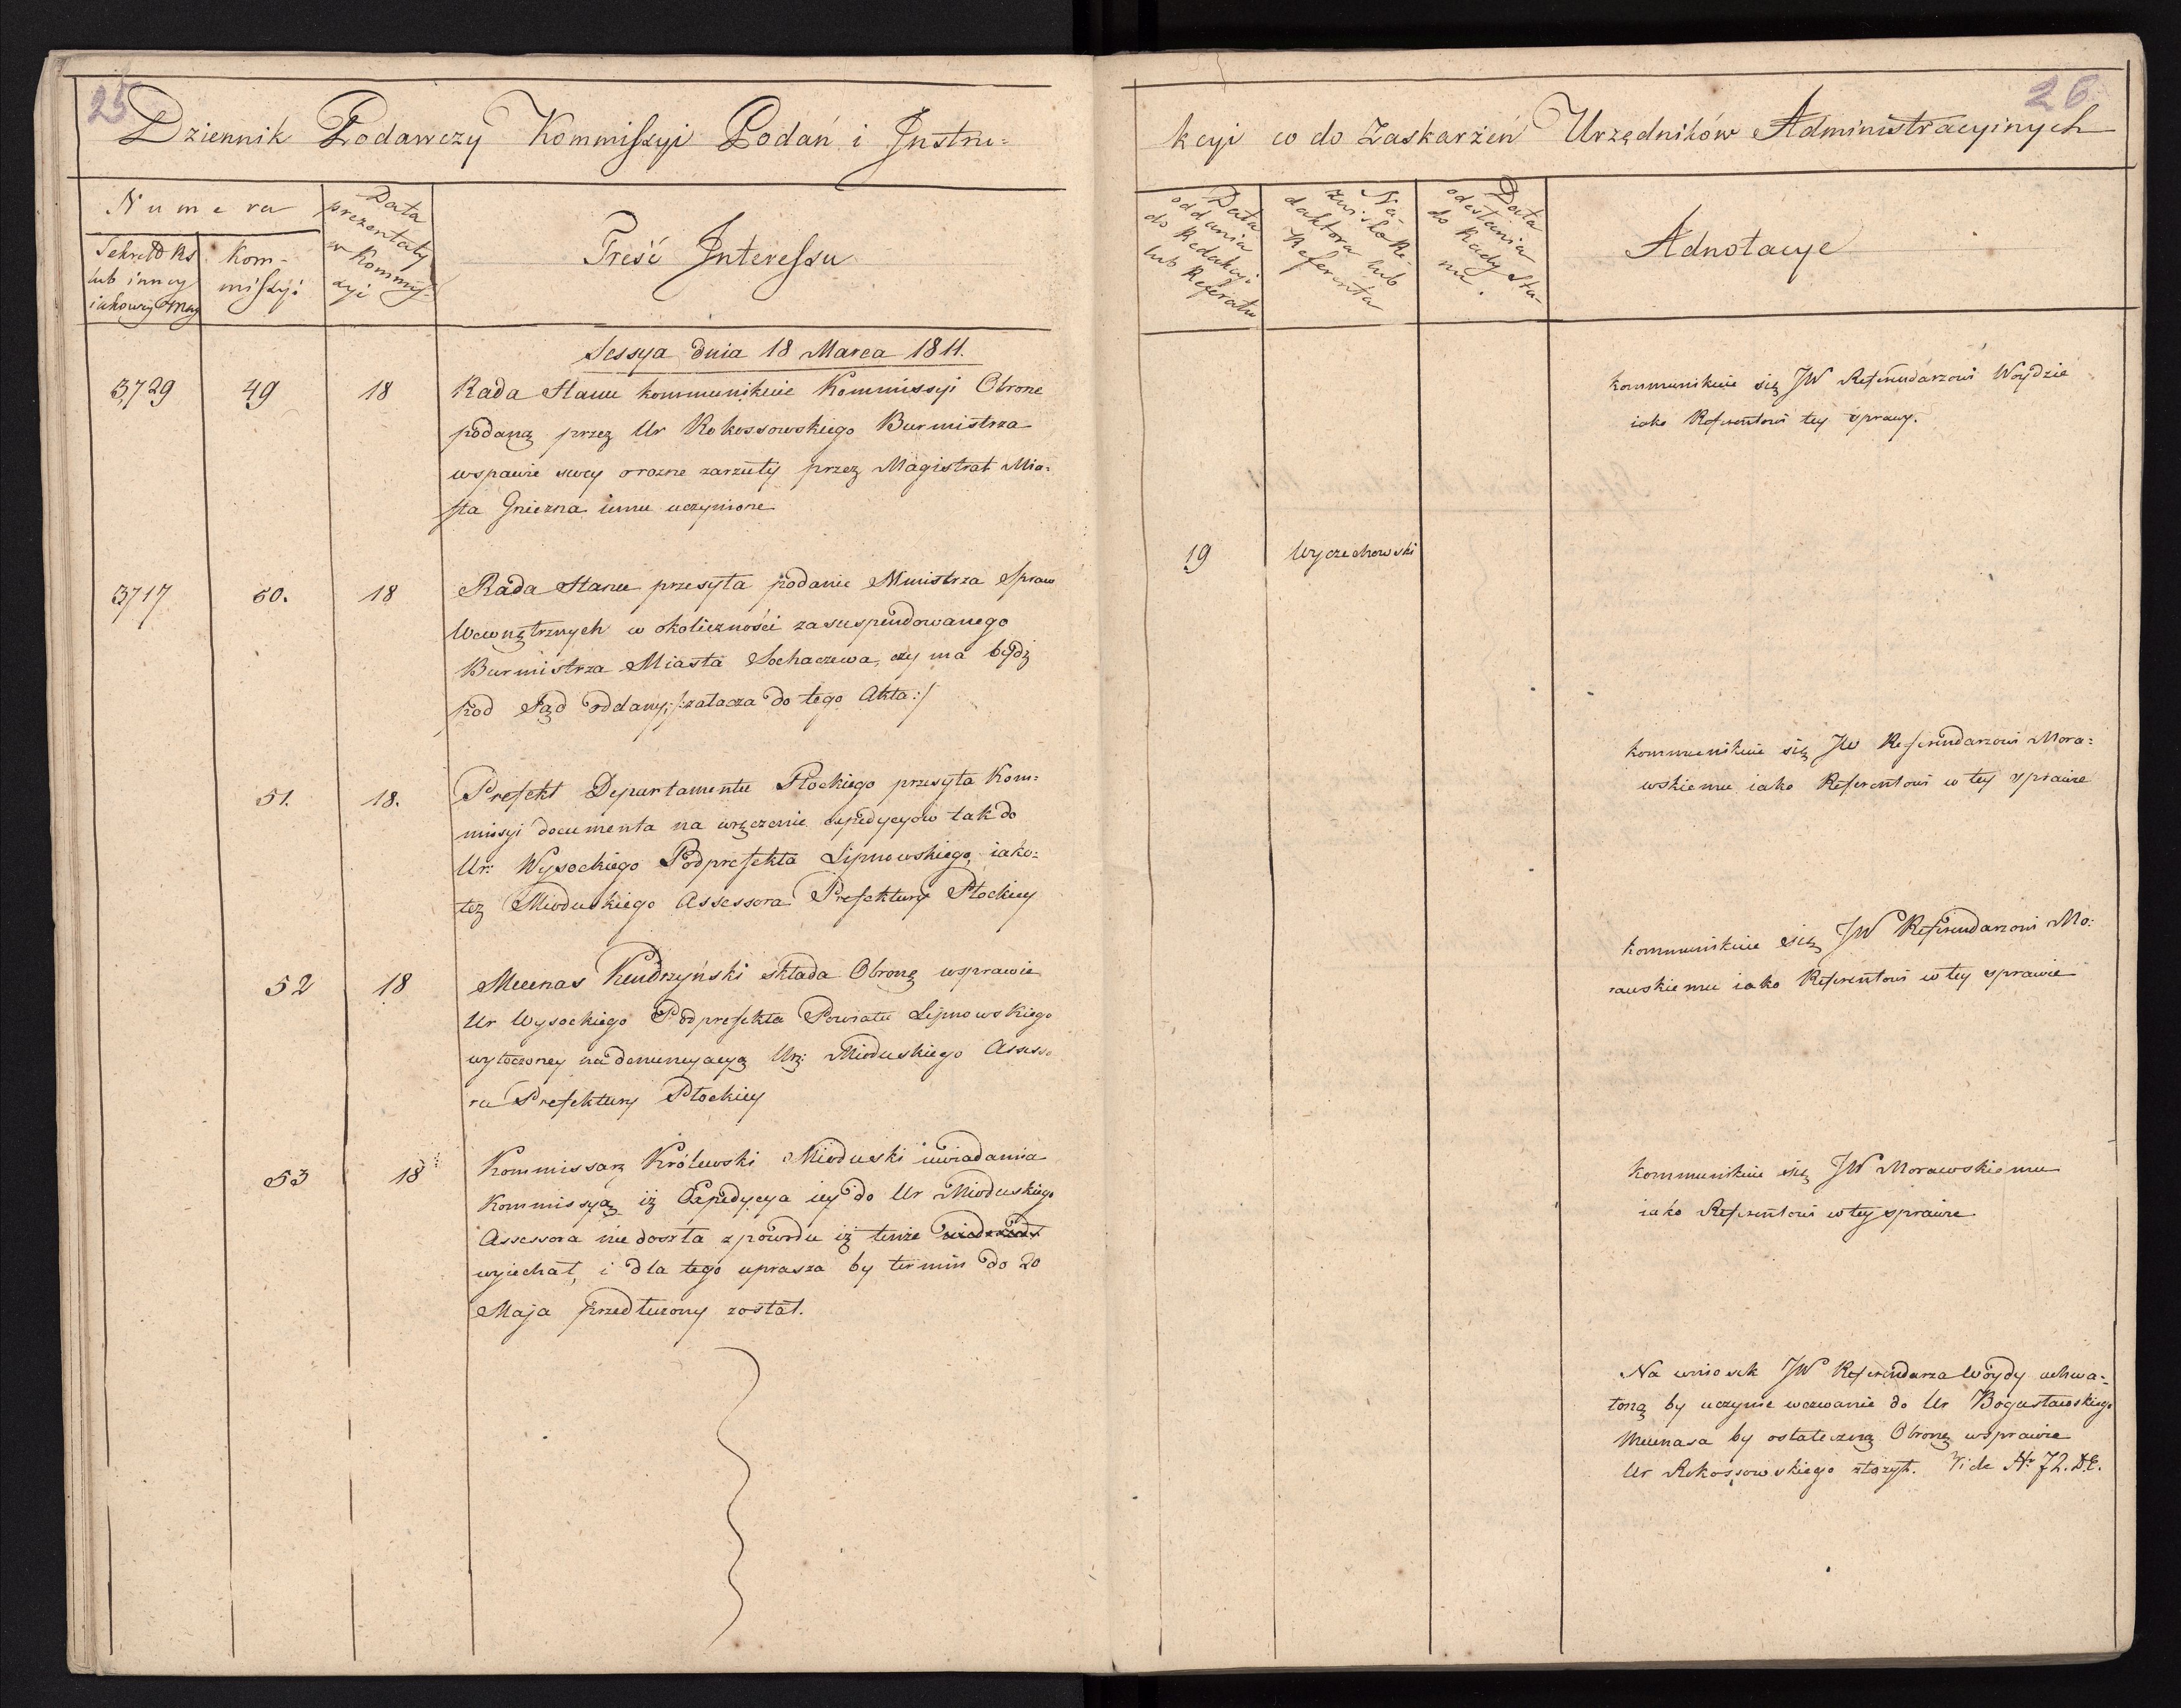 25
Dziennik Podawczy Kommissyi Podań i Jnstru=
Numera
Data prezentaty w Kommissyi
Treść Jnteressu
lub inney
Kom-
missyi
Sessya dnia 18 Marca 1811.
3729 49 18 Rada Stanu kommunikuie Kommissyi Obronę
podaną przez Ur Rokossowskiego Burmistrza
wspawie swey orozne zarzuty przez Magistrat Mia=
sta Gniezna iemu uczynione
3717 50. 18 Rada Stanu przesyła podanie Ministra Spraw
Wewnętrznych w okoliczności zasuspendowanego
Burmistrza Miasta Sochaczewa, czy ma bydź
pod Sąd oddany; /:załacza do tego Akta:/
51. 18. Prefekt Departamentu Płockiego przesyła Kom=
missyi documenta na wręczenie expedycyów tak do
Ur: Wysockiego Podprefekta Lipnowskiego, iako=
też Mioduskiego Assessora Prefektury Płockiey
52 18 Mecenas Kendrzyński składa Obronę wsprawie
Ur Wysockiego Podprefekta Powiatu Lipnowskiego
wytoczoney na denuncyacyą Ur: Mioduskiego Assesso
ra Prefektury Płockiey
53 18 Kommissarz Królewski Mioduski uwiadamia
Kommissyą iż Expedycya iey do Ur Mioduskiego
Assessora nie doszła zpowodu iż tenże
wyiechał, i dla tego uprasza by termin do 20
Maja przedłużony został.
26
kcyi co do Zaskarżeń Urzędników Administracyinych
Data oddania do Redakcyi lub Referatu
Nazwisko Redaktora lub Referenta
Data odesłania do Rady Stanu.
Adnotacye
kommunikuie się JW Referendarzowi Woydzie
iako Referentowi tey sprawy.
19 Wyczechowski
kommunikuie się JW Referendarzowi Mora=
wskiemu iako Referentowi w tey sprawie
kommunikuie się JW Referendarzowi Mo=
rawskiemu iako Referentowi wtey sprawie
Kommunikuie się JW Morawskiemu
iako Referentowi wtey sprawie
Na wniosek JW Referendarza Woydy uchwa=
loną by uczynić wezwanie do Ur Bogusławskiego
Mecenasa by ostateczną Obronę wsprawie
Ur Rokossowskiego złożył. Vide Nr 72. D.E.